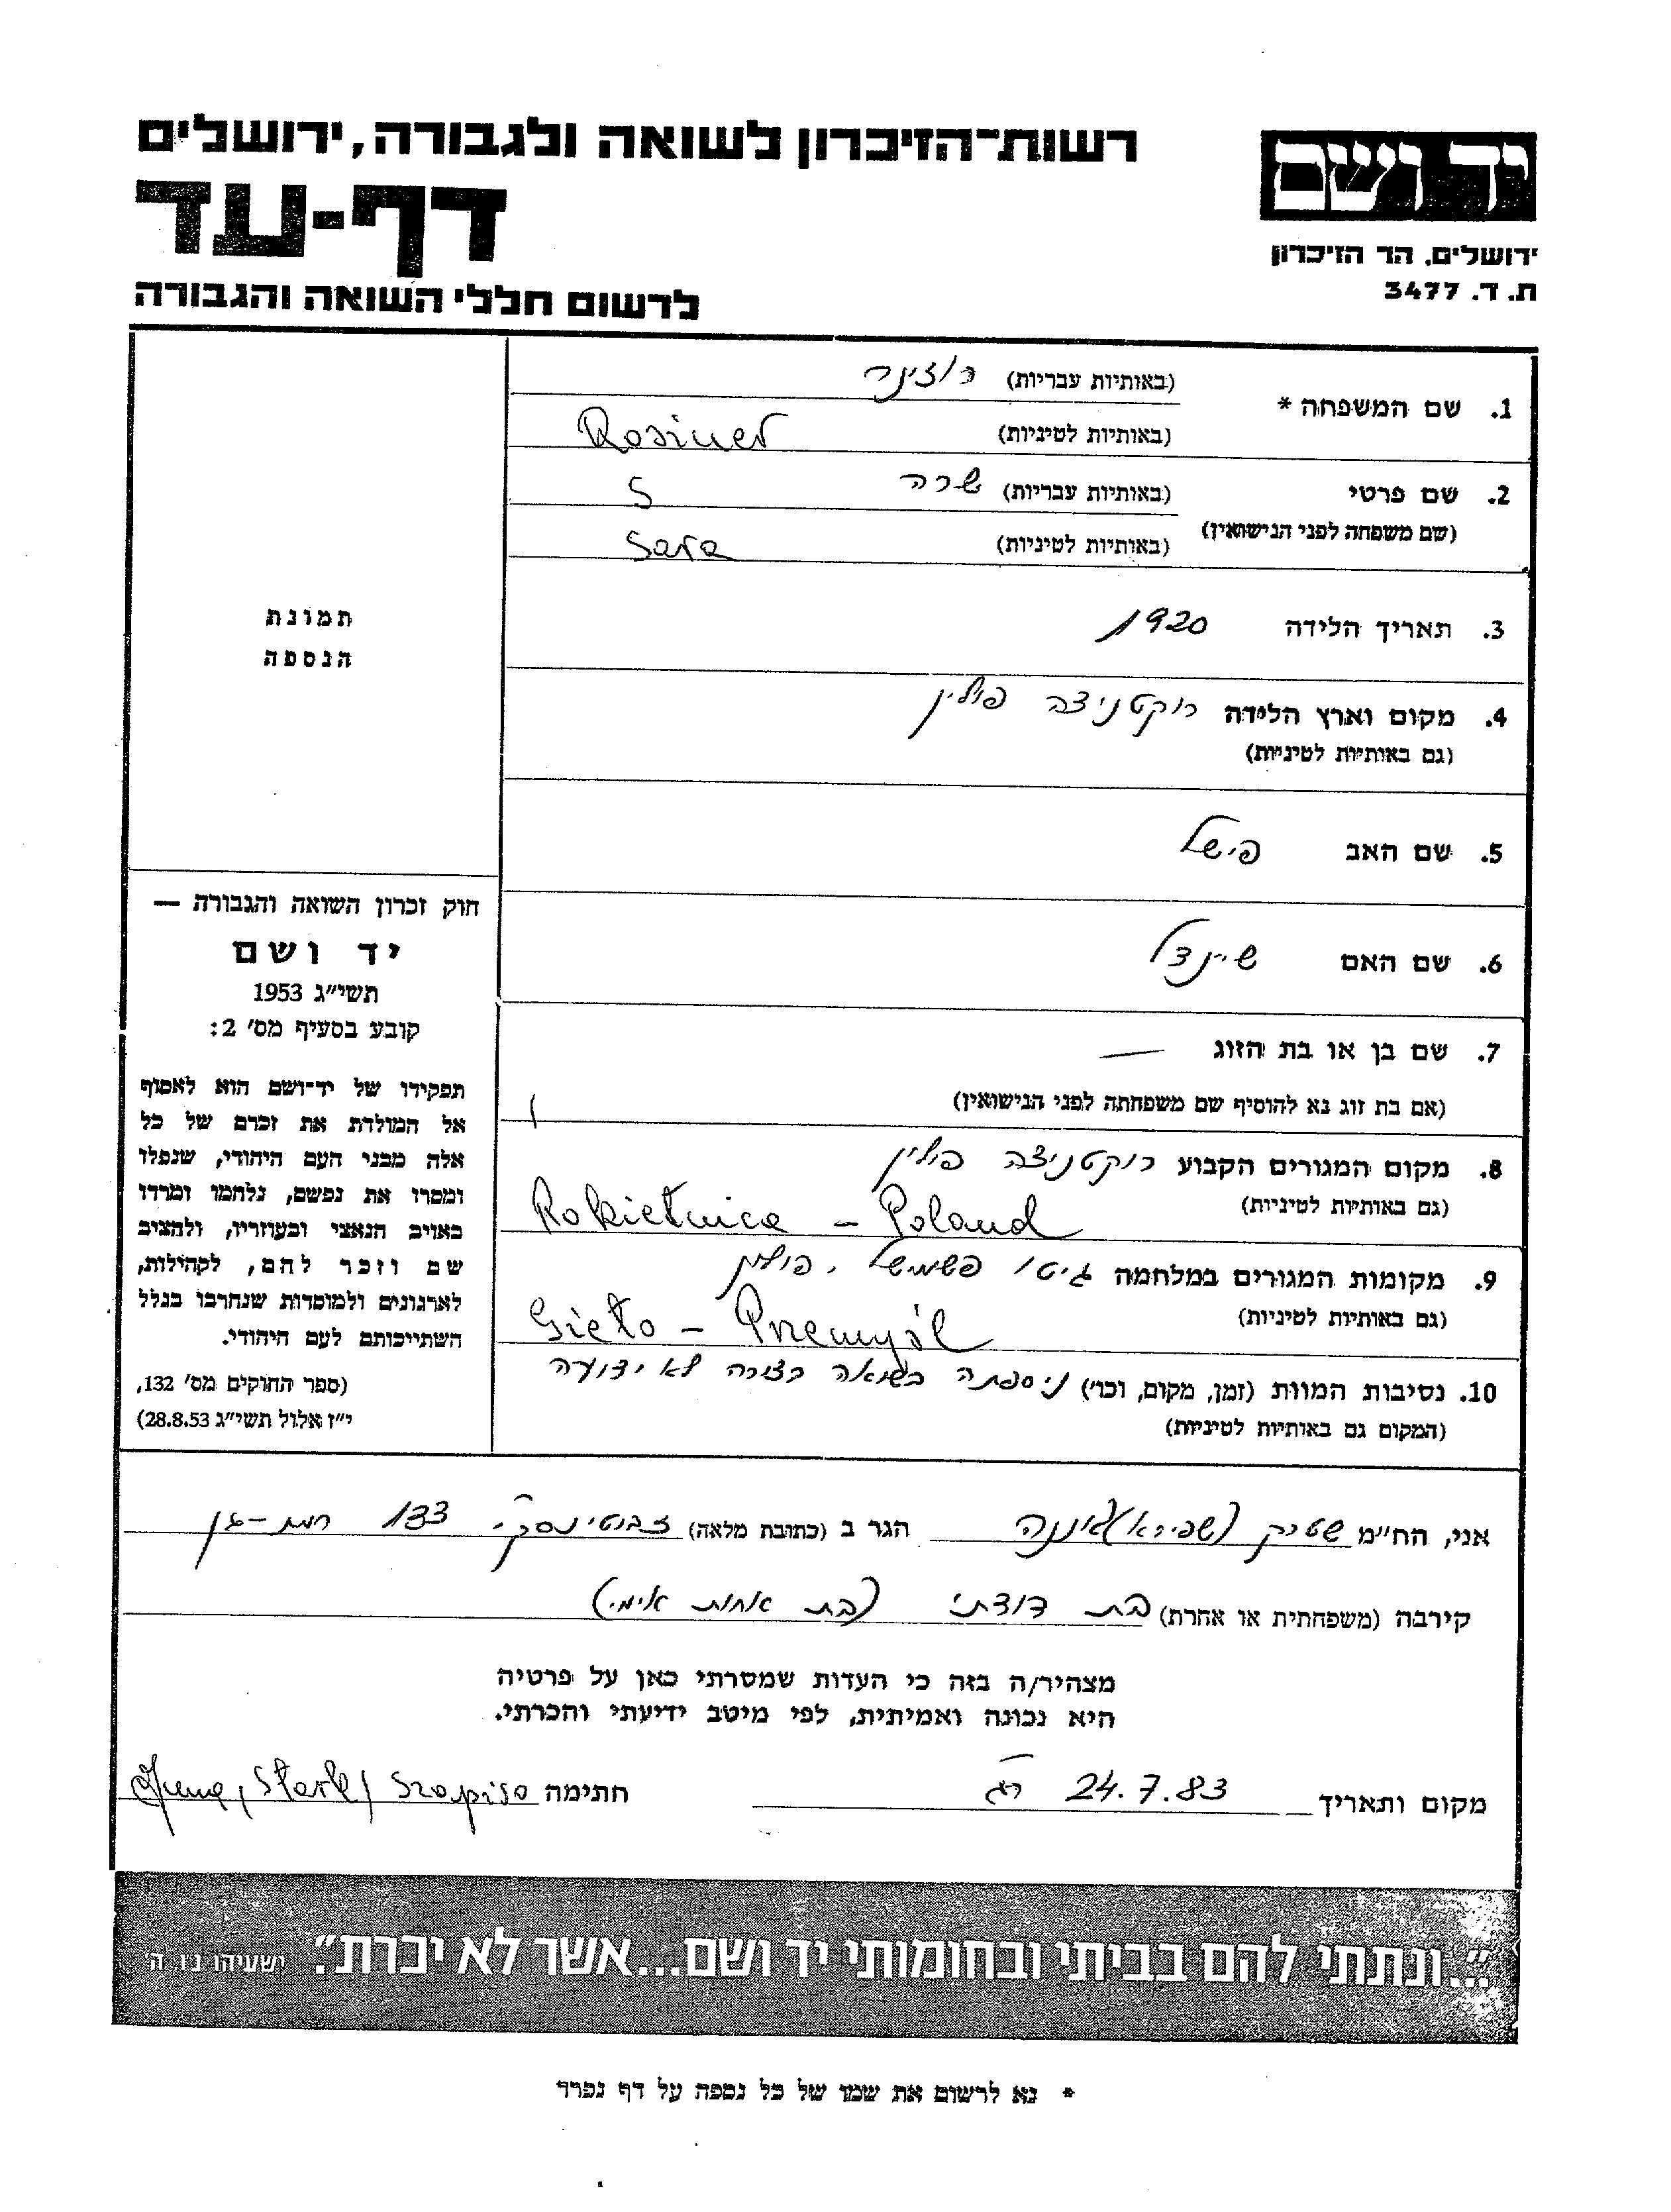 רשות־הזיכרון לשואה ולגבורה, ירושלים
דף-עד
לרשום חללי השואה והגבורה
יד ושם
ירושלים, הר הזיכרון
ת. ד. 3477
1. שם המשפחה * (באותיות עבריות) רוזינר
(באותיות לטיניות) Rosiner
2. שם פרטי (באותיות עבריות) שרה
(שם משפחה לפני הנישואין)
(באותיות לטיניות) Sara
3. תאריך הלידה 1920
4. מקום וארץ הלידה רוקטניצה פולין
(גם באותיות לטיניות)
5. שם האב פישל
6. שם האם שיינדל
7. שם בן או בת הזוג —
(אם בת זוג נא להוסיף שם משפחתה לפני הנישואין)
8. מקום המגורים הקבוע רוקטניצה פולין
(גם באותיות לטיניות) Rokietnica – Poland
9. מקומות המגורים במלחמה גיטו פשמישל, פולין
(גם באותיות לטיניות) Gieto – Przemyśl
10. נסיבות המוות (זמן, מקום, וכו') ניספתה בשואה בצורה לא ידועה
(המקום גם באותיות לטיניות)
תמונת
הנספה
חוק זכרון השואה והגבורה —
יד ושם
תשי״ג 1953
קובע בסעיף מס' 2:
תפקידו של יד־ושם הוא לאסוף
אל המולדת את זכרם של כל
אלה מבני העם היהודי, שנפלו
ומסרו את נפשם, נלחמו ומרדו
באויב הנאצי ובעוזריו, ולהציב
שם וזכר להם, לקהילות,
לארגונים ולמוסדות שנחרבו בגלל
השתייכותם לעם היהודי.
(ספר החוקים מס' 132,
י״ז אלול תשי״ג 28.8.53)
אני, הח״מ שטרק (שפירא) הגר ב (כתובת מלאה) ז'בוטינסקי 133 רמת-גן
קירבה (משפחתית או אחרת) בת דודתי (בת אחות אימי)
מצהיר/ה בזה כי העדות שמסרתי כאן על פרטיה
היא נכונה ואמיתית, לפי מיטב ידיעתי והכרתי.
מקום ותאריך 24.7.83 רג חתימה Stark/ Szapiro
״...ונתתי להם בביתי ובחומותי יד ושם...אשר לא יכרת״. ישעיהו נו ה'
* נא לרשום את שמו של כל נספה על דף נפרד